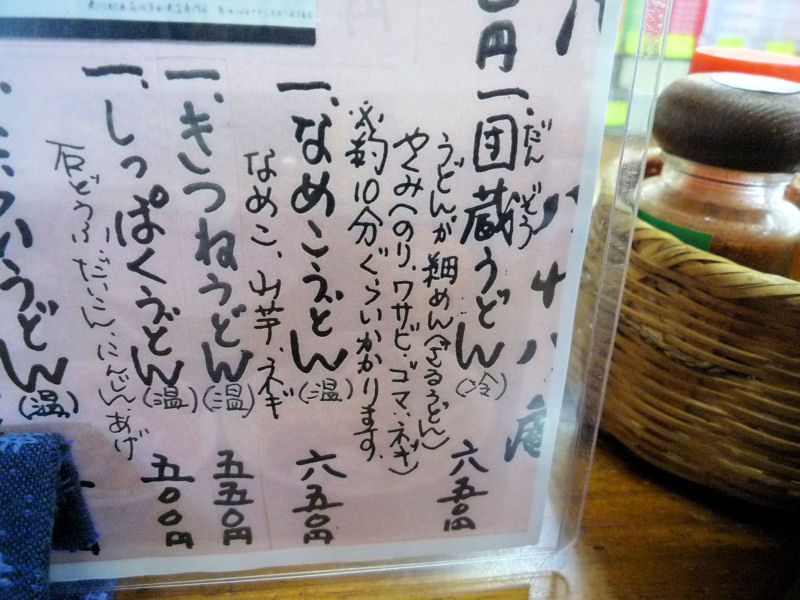 円
一、団蔵うどん(冷) 六五〇円
だん ぞう
うどんが細めん(ざるうどん)
やくみ(のり、ワサビ、ゴマ、ネギ)
※約10分ぐらいかかります。
一、なめこうどん(温) 六五〇円
なめこ、山芋、ネギ
一、きつねうどん(温) 五五〇円
一、しっぽくうどん(温) 五〇〇円
石どうふ、だいこん、にんじん、あげ
うどん(温)